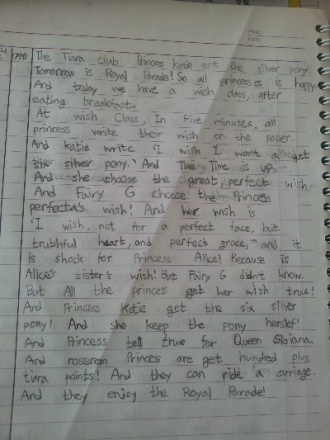 The Tiara club Princes katie and the silver pony.
Tomorrow is Royal Parade! So all princesses is happy
And today we have a wish class, after
eating breakfast.
At wish Class, In Five minuses, all
princess write their wish on the paper.
And katie write 'I wish I want a
silver pony.' And The Time is up.
And she choose the great, perfect wish.
And Fairy G choose the Princess
perfecta's wish! And her wish is
'I wish, not for a perfect face, but
truhful heart, and perfect grace,' and it
is shock for Princess Alice! Because is
Alice's sister's wish! But Fairy G didn't know.
But All the princes get her wish true!
And Princess Katie get the six sliver
pony! And she keep the pony herslef!
And Princess tell true for Queen Gloriana.
And roseroom Princes are get hundred plus
tiara points! And they can ride 'a' carriage.
And they enjoy the Royal Parade!